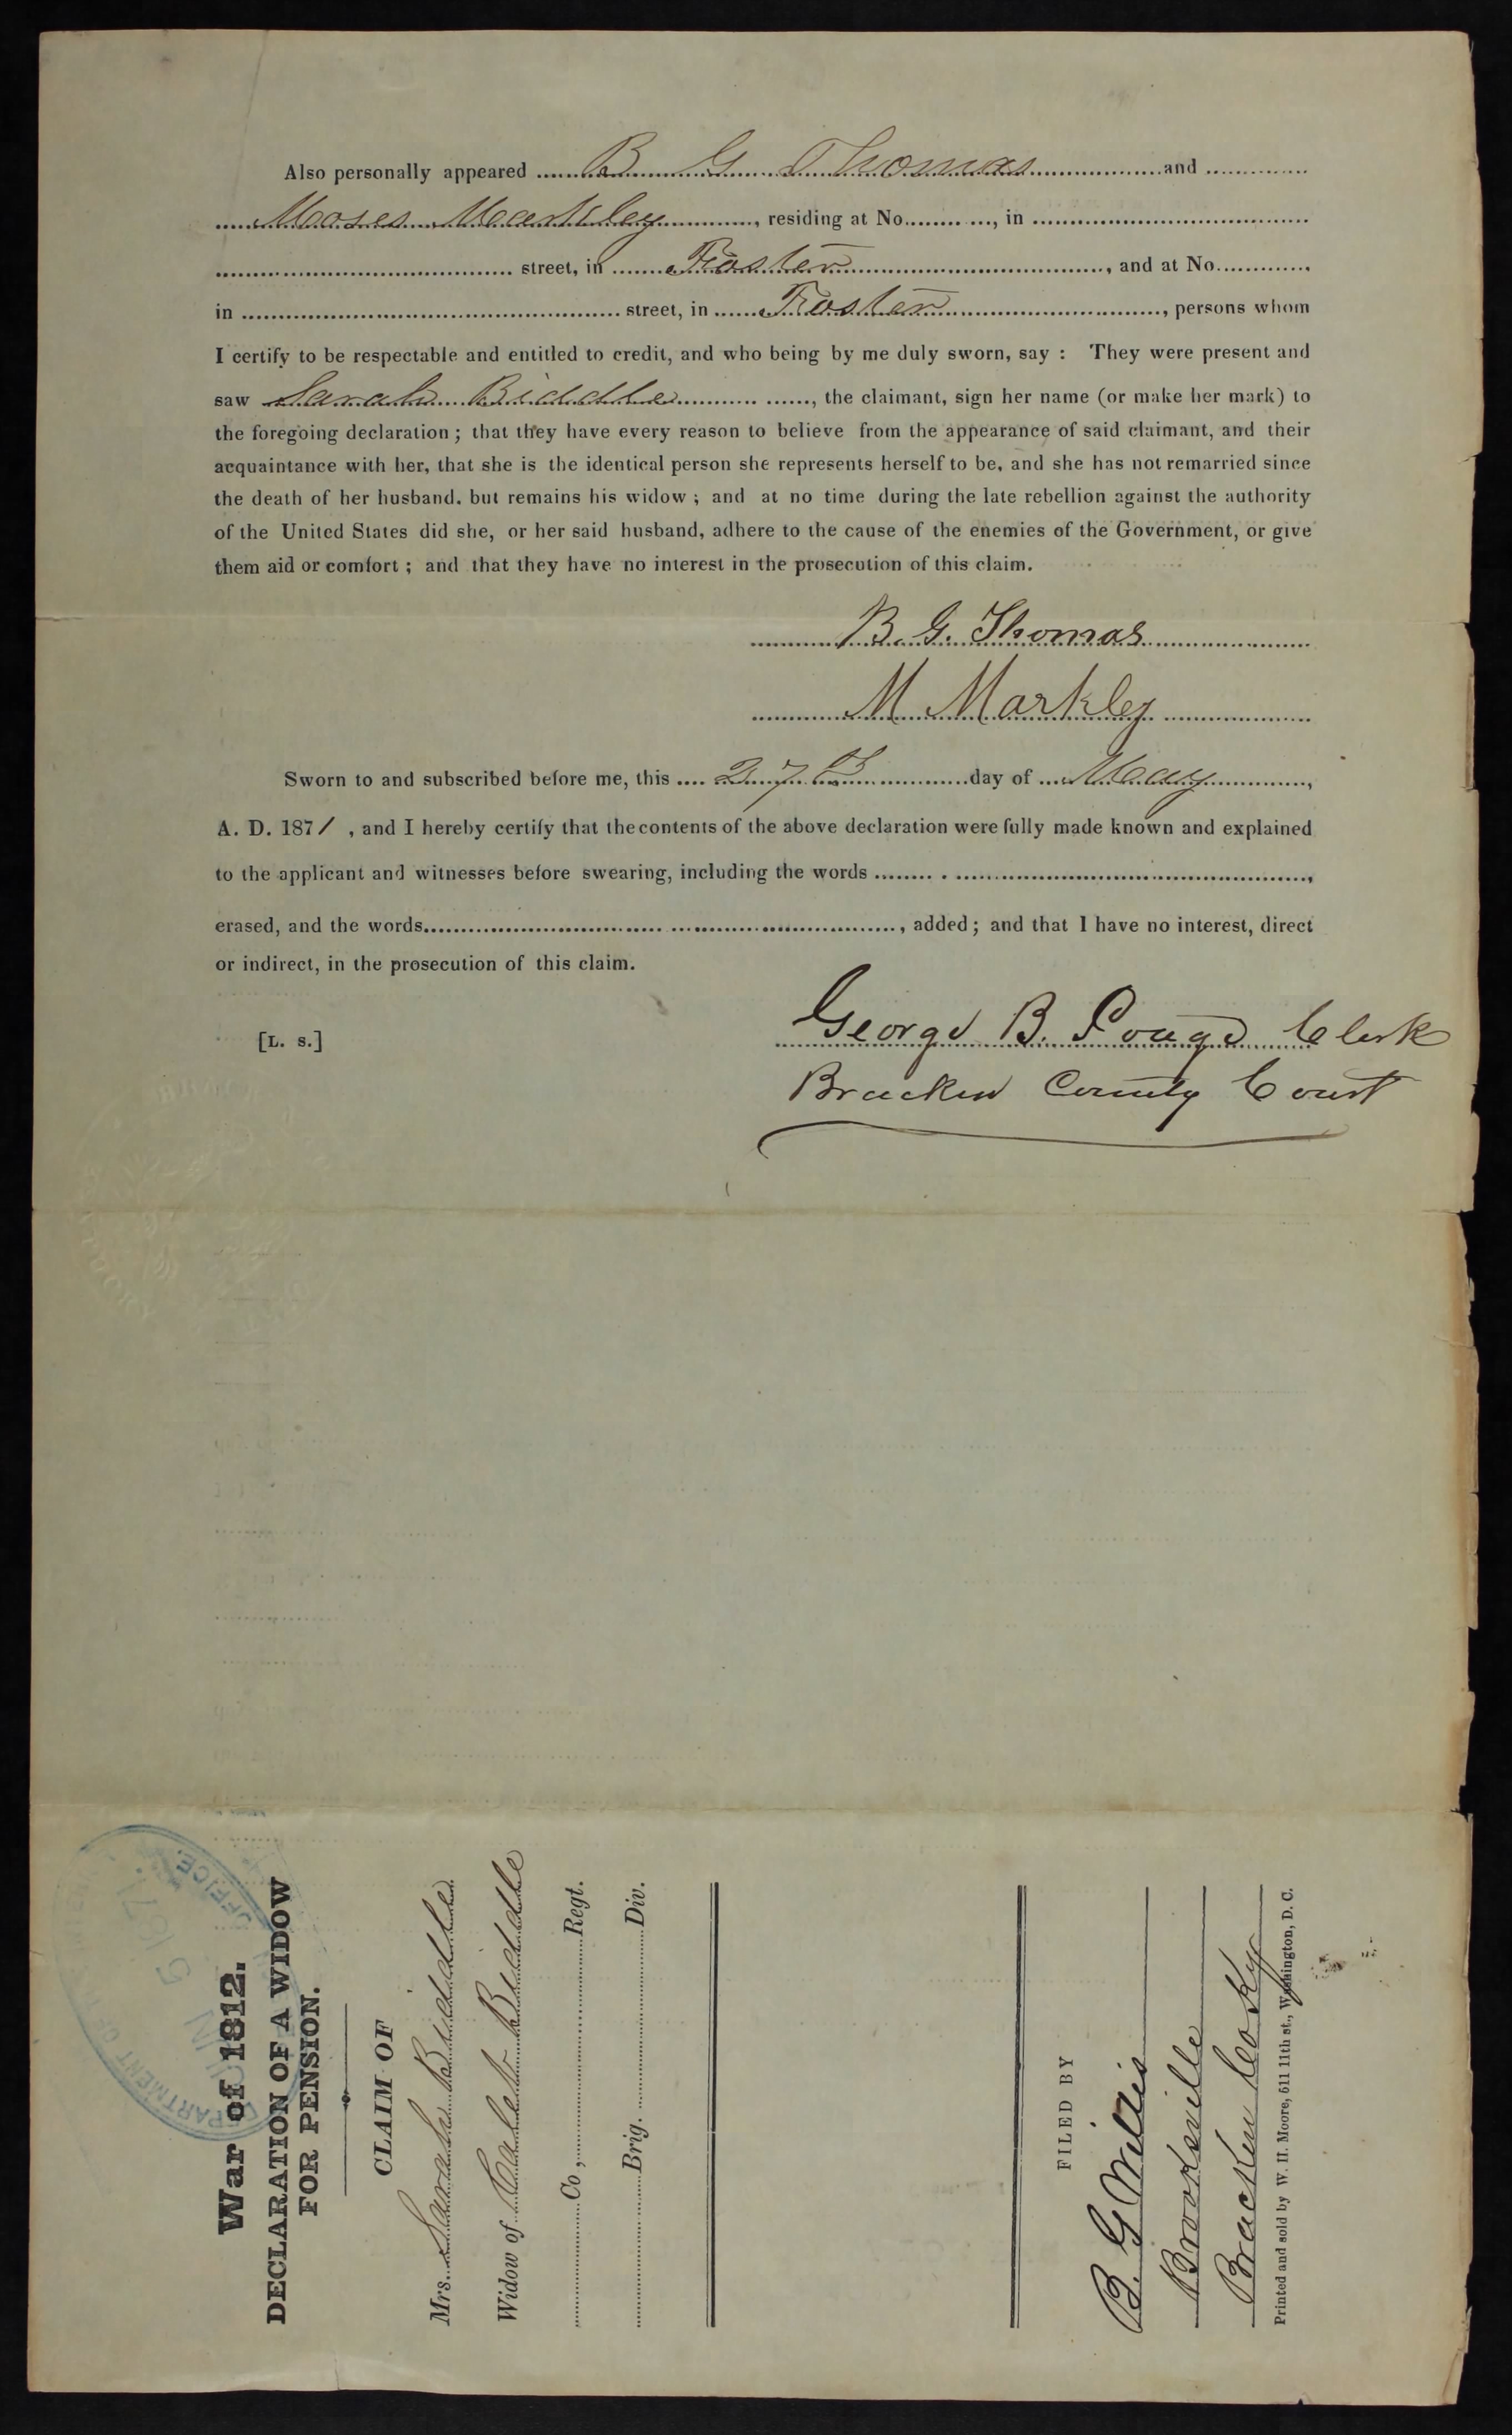 Also personally appeared B G Thomas and
Moses Markley, residing at No. , in
street, in Foster, and at No. ,
in street, in Foster, persons whom
I certify to be respectable and entitled to credit, and who being by me duly sworn, say : They were present and
saw Sarah Biddle, the claimant, sign her name (or make her mark) to
the foregoing declaration ; that they have every reason to believe from the appearance of said claimant, and their
acquaintance with her, that she is the identical person she represents herself to be, and she has not remarried since
the death of her husband. but remains his widow ; and at no time during the late rebellion against the authority
of the United States did she, or her said husband, adhere to the cause of the enemies of the Government, or give
them aid or comfort ; and that they have no interest in the prosecution of this claim.
B. G. Thomas
M Markley
Sworn to and subscribed before me, this 27th day of May,
A. D. 1871, and I hereby certify that the contents of the above declaration were fully made known and explained
to the applicant and witnesses before swearing, including the words ,
erased, and the words , added ; and that I have no interest, direct
or indirect, in the prosecution of this claim.
[L. S.]
George B. Poage Clerk
Bracken County Court
War of 1812.
DECLARATION OF A WIDOW
FOR PENSION.
CLAIM OF
Mrs. Sarah Biddle
Widow of Caleb Biddle
Co , Regt.
Brig. Div.
FILED BY
B. G. Willis
Brooksville
Bracken Co Ky
Printed and sold by W. H. Moore, 511 11th st., Washington, D. C.
OFFICE